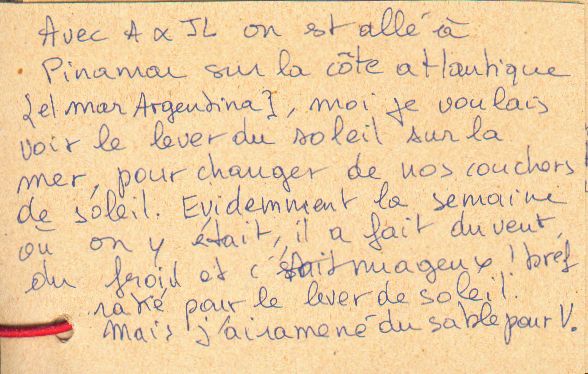 Avec A & JL on st allé à
Pinamar sur la côte atlantique
[el mar Argentina], moi je voulais
voir le lever du soleil sur la
mer, pour changer de nos couchers
de soleil. Evidemment la semaine
où on y était, il a fait du vent,
du froid et c'était nuageux ! bref
raté pour le lever de soleil.
Mais j'ai ramené du sable pour V.